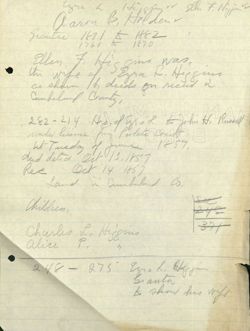 Ezra L. Higgins Ellen F. Higgins
Aaron B. Holden
Grantee 1871 to 1882
1760 to 1870
Ellen F. Higgins was
the wife of Ezra L. Higgins
as shown by deeds on record in
Cumberland County,
282-214 Ezra L to John H. Russell
under license from Probate Court
1st Tuesday of June 1857,
deed dated Oct 13, 1857
Rec Oct 14 1857
Land in Cumberland Co.
Children,
Charles L. Higgins
Alice P. "
371
248-275 Ezra L. Higgins
Grantor
to show his wife